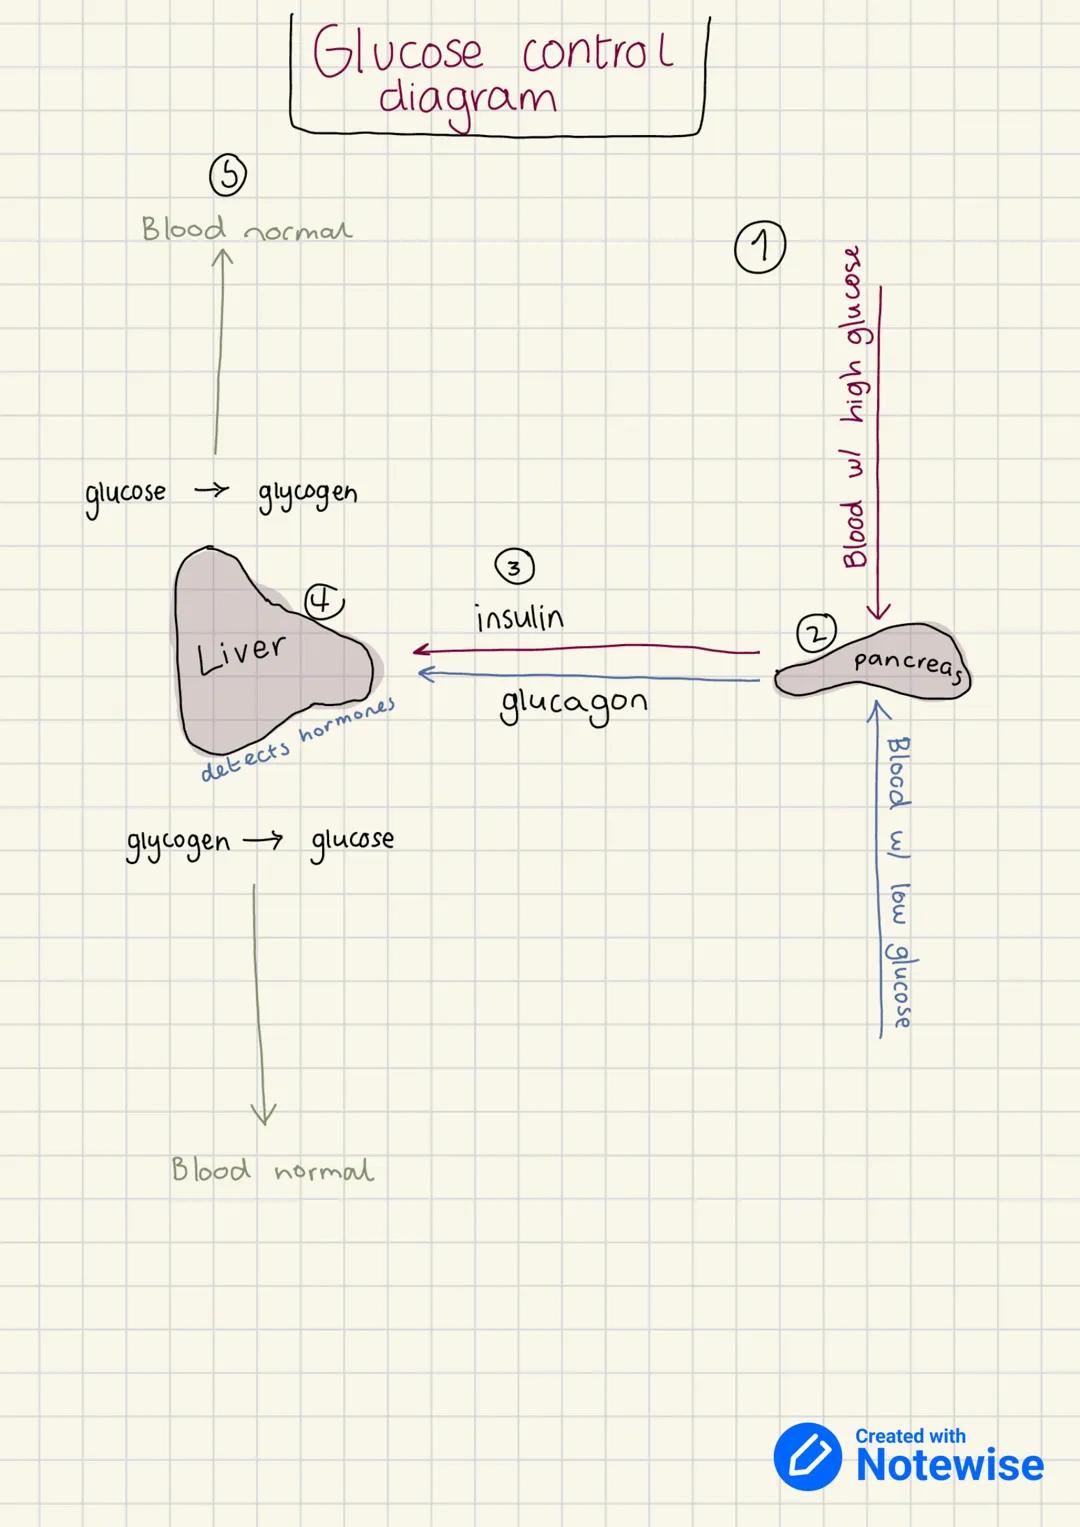 Glucose control
diagram
5
Blood normal
1
Blood w/ high glucose
glucose → glycogen
3
insulin
4
Liver
2
pancreas
glucagon
detects hormones
Blood w/ low glucose
glycogen → glucose
Blood normal
Created with
Notewise